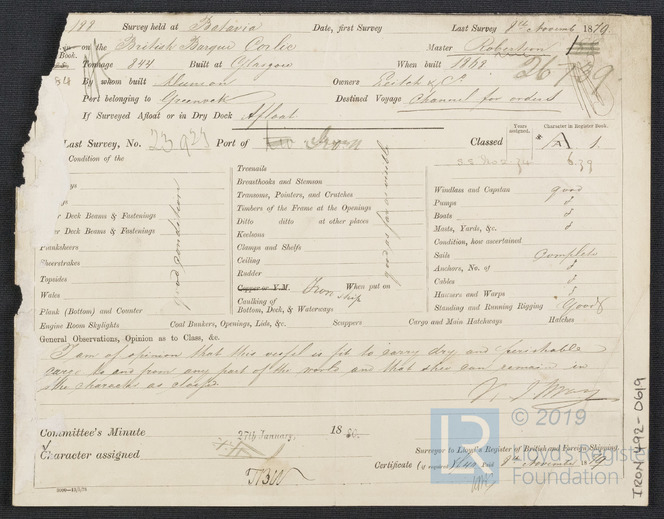 199 Survey held at Batavia Date, first Survey Last Survey 8th Novemb 1879
on the British Barque Corlic Master Robertson
Book.
Tonnage 844 Built at Glasgow When built 1868 26739
84 By whom built Owners Leitch & Co
Port belonging to Greenock Destined Voyage Channel for orders
If Surveyed Afloat or in Dry Dock Afloat
Years assigned. Character in Register Book.
Last Survey, No. 23927 Port of Iron Classed A 1.
S.S. No 2 6.79
Condition of the
Deck Beams & Fastenings
er Deck Beams & Fastenings
Planksheers
Sheerstrakes
Topsides
Wales
Plank (Bottom) and Counter
good condition
Treenails
Breasthooks and Stemson
Transoms, Pointers, and Crutches
Timbers of the Frame at the Openings
Ditto ditto at other places
Keelsons
Clamps and Shelfs
Ceiling
Rudder
Copper or Y.M. Iron Ship When put on
Caulking of
Bottom, Deck, & Waterways
good
Windlass and Capstan good
Pumps d
Boats d
Masts, Yards, &c. d
Condition, how ascertained
Sails Complete
Anchors, No. of d
Cables d
Hawsers and Warps d
Standing and Running Rigging Good
Engine Room Skylights Coal Bunkers, Openings, Lids, &c. Scuppers Cargo and Main Hatchways Hatches
General Observations, Opinion as to Class, &c.
I am of opinion that this vessel is fit to carry dry and perishable
cargo to and from any part of the world and that she can remain in
the character as classed.
Committee's Minute 27th January, 1880.
Character assigned
Surveyor to Lloyd's Register of British and Foreign Shipping.
Certificate (if required) 8th November 79
© 2019
LR Lloyd's Register
Foundation
IRON492-0619